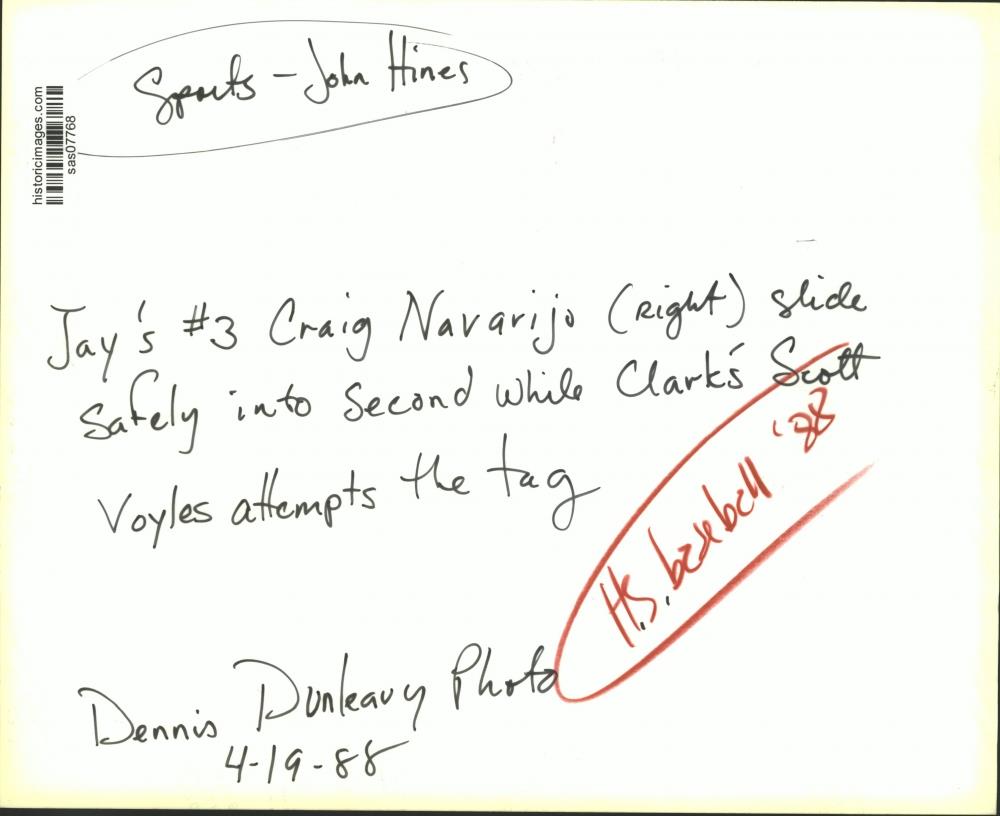 Sports - John Hines
historicimages.com
sas07768
Jay's #3 Craig Navarijo (right) slide
Safely into Second while Clark's Scott
Voyles attempts the tag
H.S. baseball '88
Dennis Dunleavy Photo
4-19-88